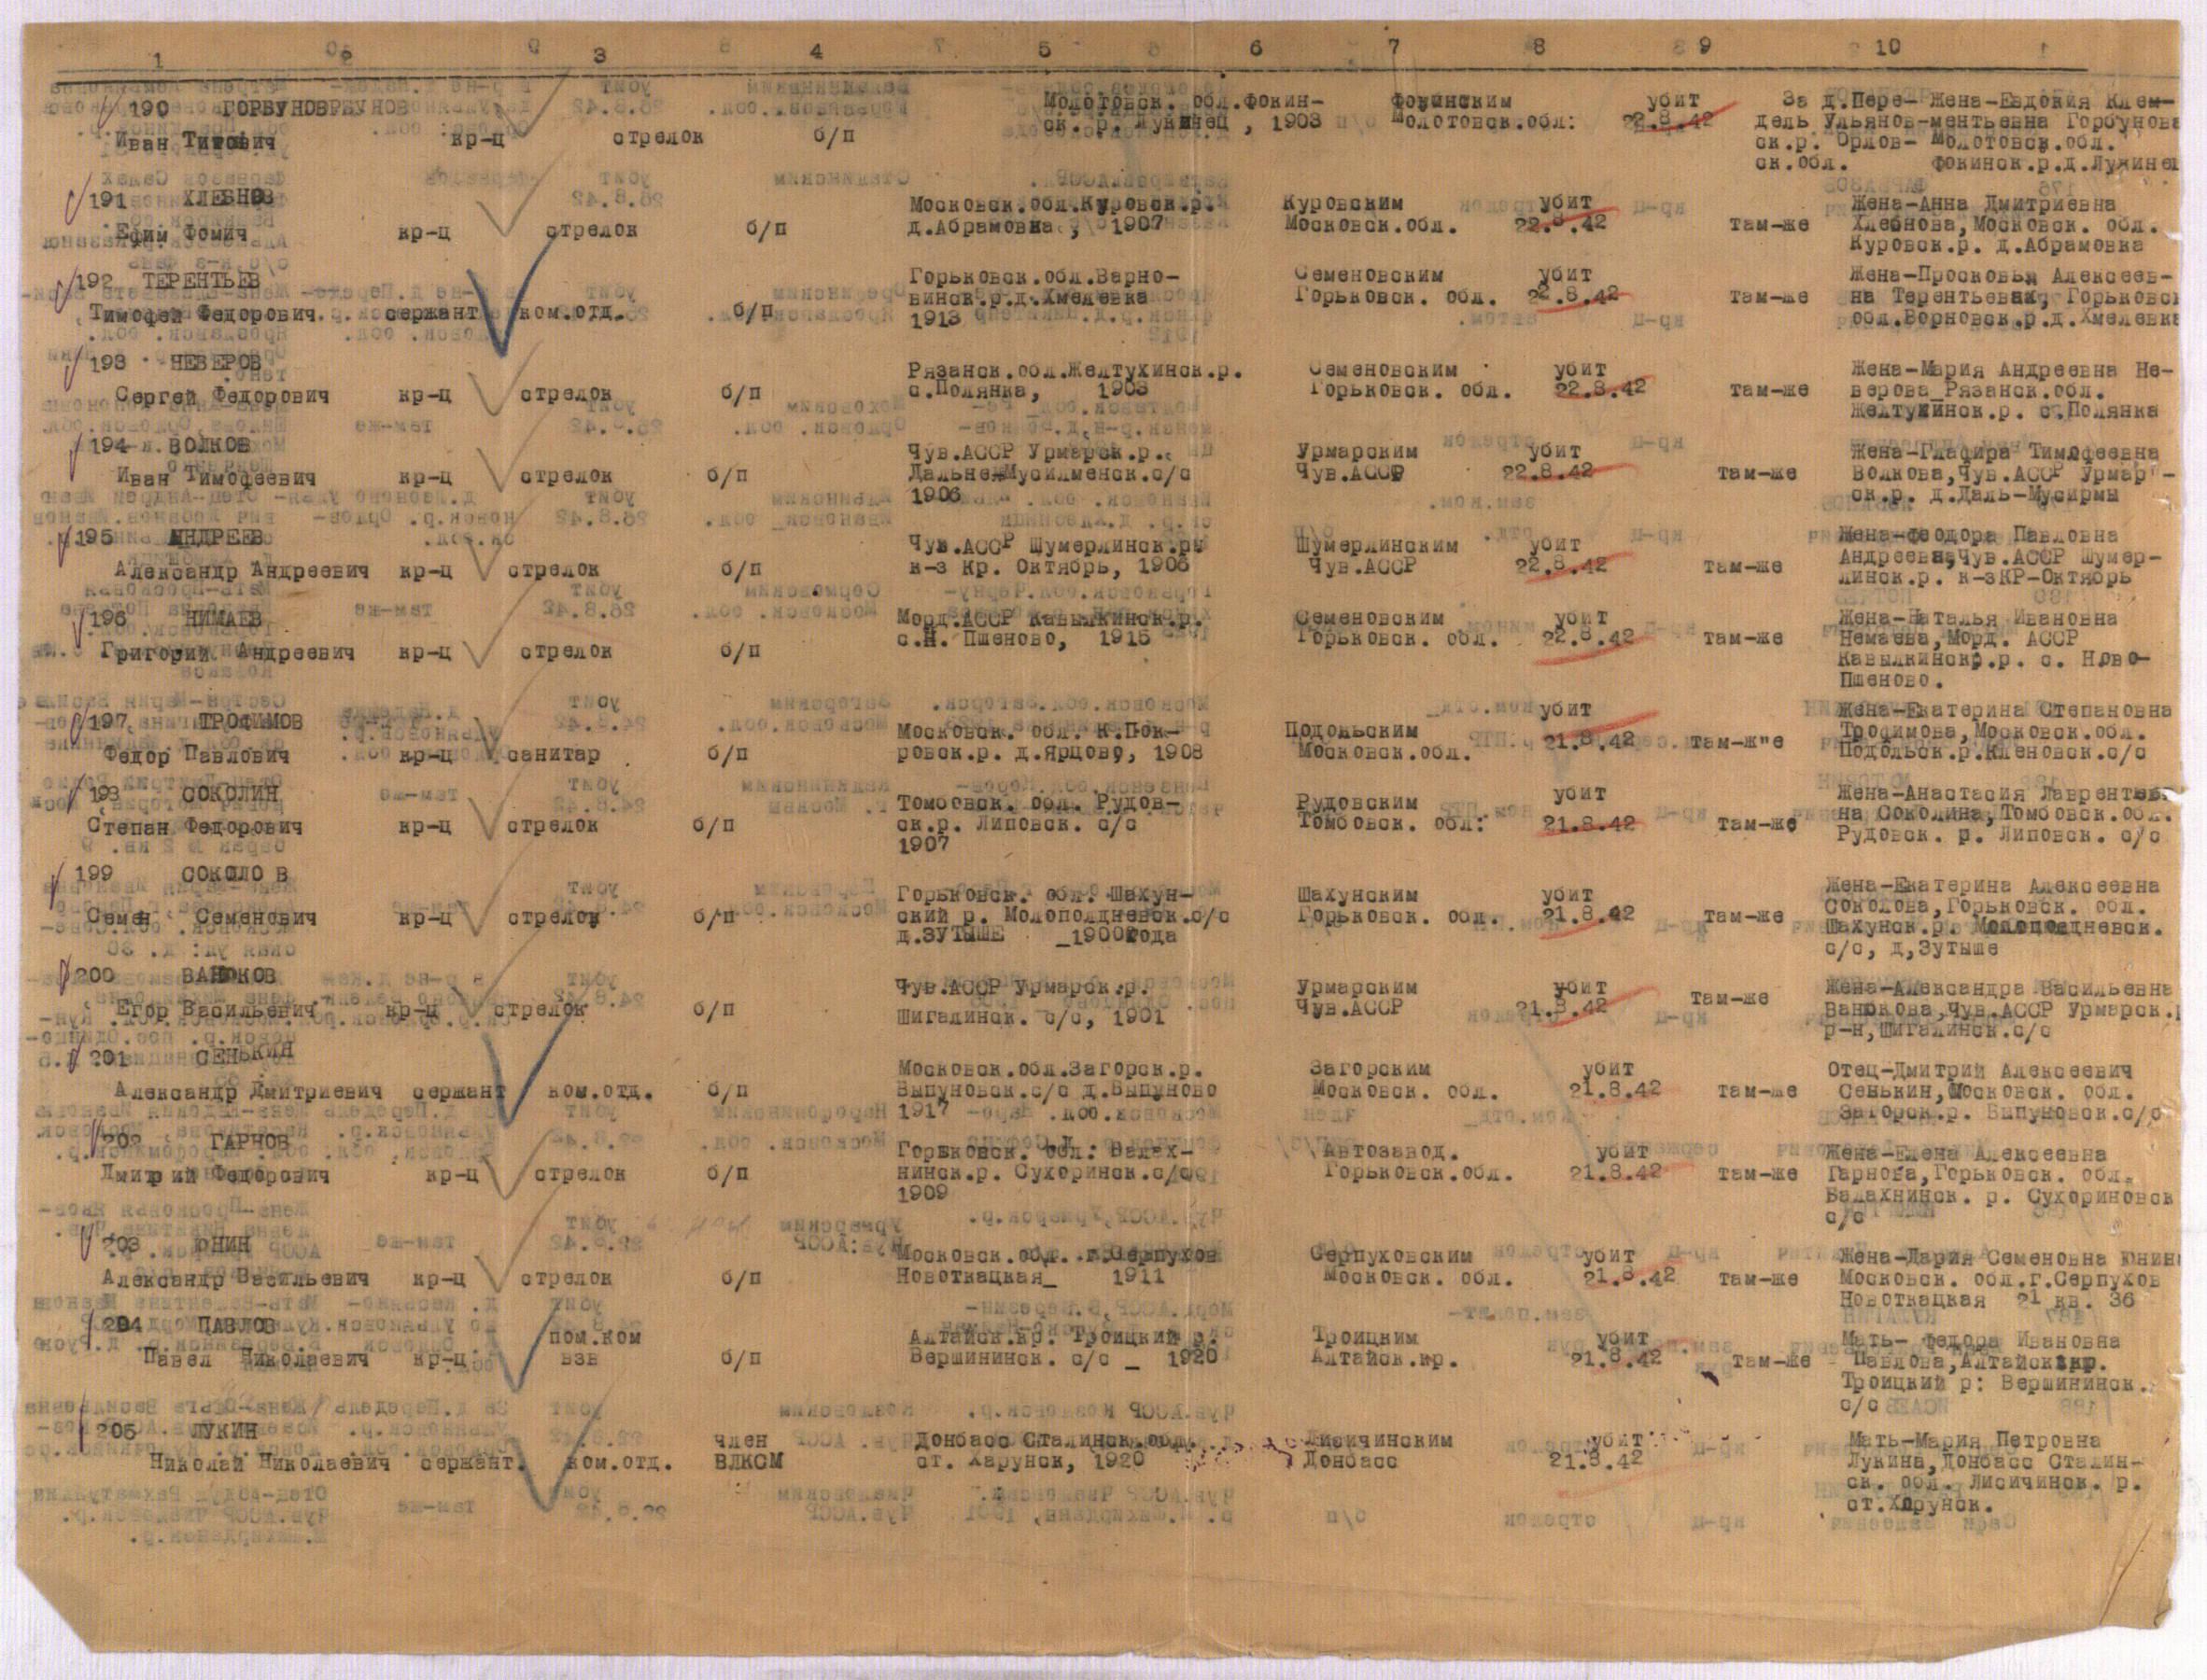 1 2 3 4 5 6 7 8 9 10
190 ГОРБУНОВ Молотовск. обл.Фокин- Фокинским убит За д.Пере- Жена-Евдокия Клем-
ск. р. Лукинец , 1903 Молотовск.обл: 22.8.42 дель Ульянов- ментьевна Горбунова
Иван Титович кр-ц стрелок б/п ск.р. Орлов- Молотовск.обл.
ск.обл. Фокинск.р.д.Лукинец
191 ХЛЕБНОВ Московск.обл.Куровск.р. Куровским убит Жена-Анна Дмитриевна
Ефим Фомич кр-ц стрелок б/п д.Абрамовка , 1907 Московск.обл. 22.8.42 там-же Хлебнова,Московск. обл.
Куровск.р. д.Абрамовка
192 ТЕРЕНТЬЕВ Горьковск.обл.Варно- Семеновским убит Жена-Просковья Алексеев-
винск.р.д.Хмелевка Горьковск. обл. 22.8.42 там-же на Терентьева, Горьковск
Тимофей Федорович. сержант ком.отд. б/п 1913 обл.Ворновск.р.д.Хмелевка
193 НЕВЕРОВ Рязанск.обл.Желтухинск.р. Семеновским убит Жена-Мария Андреевна Не-
Сергей Федорович кр-ц стрелок б/п с.Полянка, 1903 Горьковск. обл. 22.8.42 там-же верова_Рязанск.обл.
Желтухинск.р. с.Полянка
194 ВОЛКОВ Чув.АССР Урмарск.р. Урмарским убит Жена-Глафира Тимофеевна
Иван Тимофеевич кр-ц стрелок б/п Дальне-Мусилменск.с/с Чув.АССР 22.8.42 там-же Волкова,Чув.АССР Урмар-
1906 ск.р. д.Даль-Мусирмы
195 АНДРЕЕВ Чув.АССР Шумерлинск.р. Шумерлинским убит Жена-Феодора Павловна
Александр Андреевич кр-ц стрелок б/п к-з Кр. Октябрь, 1906 Чув.АССР 22.8.42 там-же Андреевна,Чув.АССР Шумер-
линск.р. к-зКР-Октябрь
196 НИМАЕВ Морд.АССР Кавылкинск.р. Семеновским убит Жена-Наталья Ивановна
Григорий Андреевич кр-ц стрелок б/п с.Н. Пшеново, 1915 Горьковск. обл. 22.8.42 там-же Немаева,Морд. АССР
Кавылкинск.р. с. Ново-
Пшеново.
197 ТРОФИМОВ Московск. обл. К.Пок- Подольским убит Жена-Екатерина Степановна
Федор Павлович кр-ц санитар б/п ровск.р. д.Ярцово, 1908 Московск.обл. 21.8.42 там-ж"е Трофимова,Московск.обл.
Подольск.р.Кленовск.с/с
198 СОКОЛИН Томбовск. обл. Рудов- Рудовским убит Жена-Анастасия Лаврентьев-
Степан Федорович кр-ц стрелок б/п ск.р. Липовск. с/с Томбовск. обл: 21.8.42 там-же на Соколина,Томбовск.обл.
1907 Рудовск. р. Липовск. с/с
199 СОКОЛОВ Горьковск. обл. Шахун- Шахунским убит Жена-Екатерина Алексеевна
Семен Семенович кр-ц стрелок б/п ский р. Молополдневск.с/с Горьковск. обл. 21.8.42 там-же Соколова,Горьковск. обл.
д.ЗУТЫШЕ _1900года Шахунск.р. Молополдневск.
с/с, д,Зутыше
200 ВАНЮКОВ Чув.АССР Урмарск.р. Урмарским убит Жена-Александра Васильевна
Егор Васильевич кр-ц стрелок б/п Шигалинск. с/с, 1901 Чув.АССР 21.8.42 там-же Ванюкова,Чув.АССР Урмарск.
р-н,Шигалинск.с/с
201 СЕНЬКИН Московск.обл.Загорск.р. Загорским убит Отец-Дмитрий Алексеевич
Александр Дмитриевич сержант ком.отд. б/п Выпуновск.с/с д.Выпуново Московск. обл. 21.8.42 там-же Сенькин,Московск. обл.
1917 Загорск.р. Выпуновск.с/с
202 ГАРНОВ Горьковск. обл: Балах- Автозавод. убит Жена-Елена Алексеевна
Дмитрий Федорович кр-ц стрелок б/п нинск.р. Сухоринск.с/с Горьковск.обл. 21.8.42 там-же Гарнова,Горьковск. обл.
1909 Балахнинск. р. Сухориновск
с/с
203 ЮНИН Московск.обл. г.Серпухов Серпуховским убит Жена-Дария Семеновна Юнина
Александр Васильевич кр-ц стрелок б/п Новоткацкая_ 1911 Московск. обл. 21.8.42 там-же Московск. обл.г.Серпухов
Новоткацкая 21 кв. 36
204 ПАВЛОВ пом.ком Алтайск.кр. Троицкий р. Троицким убит Мать- Федора Ивановна
Павел Николаевич кр-ц взв б/п Вершининск. с/с _ 1920 Алтайск.кр. 21.8.42 там-же Павлова,Алтайск.кр.
Троицкий р: Вершининск.
с/с
205 ЛУКИН член Донбасс Сталинск.обл. Лисичинским убит Мать-Мария Петровна
Николай Николаевич сержант. ком.отд. ВЛКСМ ст. Харунск, 1920 Донбасс 21.8.42 Лукина,Донбасс Сталин-
ск. обл. Лисичинск. р.
ст.Харунск.